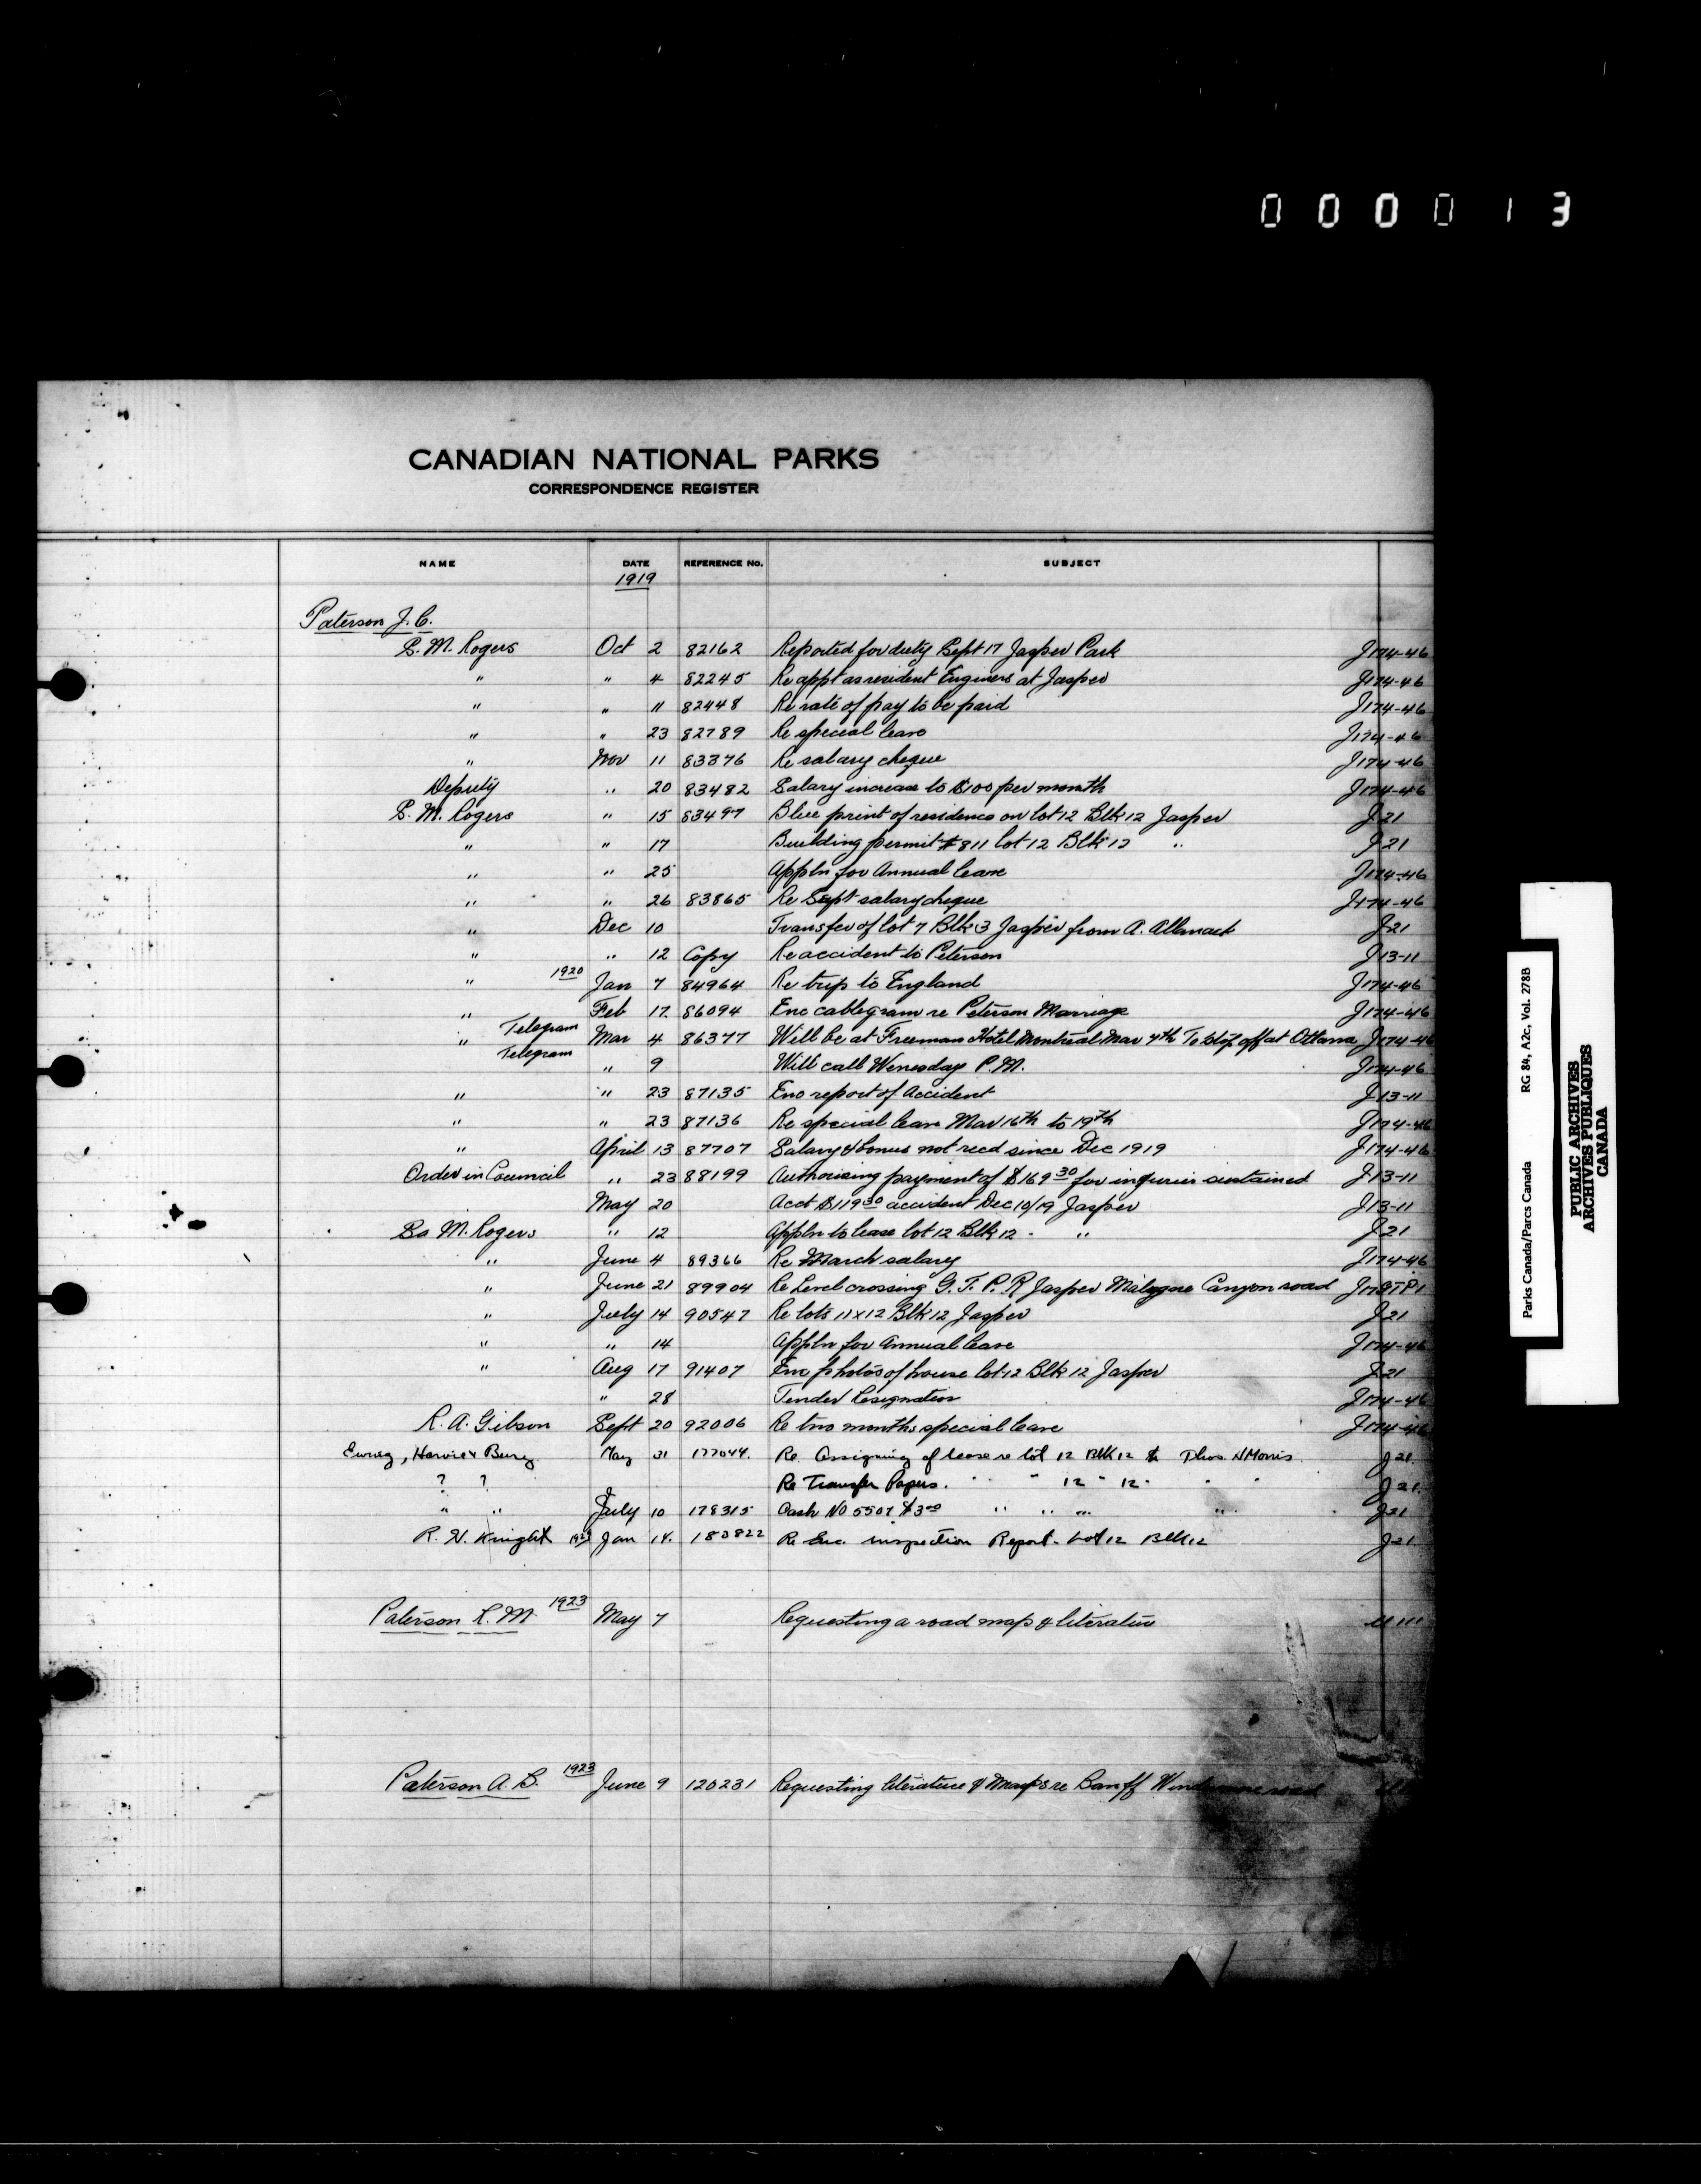 000013
CANADIAN NATIONAL PARKS
CORRESPONDENCE REGISTER
NAME DATE REFERENCE No. SUBJECT
1919
Paterson J. C.
S. M. Rogers Oct 2 82162 Reported for duty Sept 17 Jasper Park J174-46
" " 4 82245 Re appt as resident Engineer at Jasper J174-46
" " 11 82448 Re rate of pay to be paid J174-46
" " 23 82789 Re special leave J174-46
" Nov 11 83376 Re salary cheque J174-46
Deputy " 20 83482 Salary increase to $100 per month J174-46
S. M. Rogers " 15 83497 Blue print of residence on lot 12 Blk 12 Jasper J21
" " 17 Building permit #811 lot 12 Blk 12 " J21
" " 25 Appln for Annual leave J174-46
" " 26 83865 Re Sept salary cheque J174-46
" Dec 10 Transfer of lot 7 Blk 3 Jasper from A. J21
" " 12 Copy Re accident to Peterson J13-11
" 1920 Jan 7 84964 Re trip to England J174-46
" Feb 17 86094 Enc cablegram re Peterson Marriage J174-46
" Telegram Mar 4 86377 Will be at Freeman Hotel Montreal Mar 4th To stop off at Ottawa J174-46
Telegram " 9 Will call Wenesday P.M. J174-46
" " 23 87135 Enc report of Accident J13-11
" " 23 87136 Re special leave Mar 16th to 19th J174-46
" April 13 87707 Salary & bonus not recd since Dec 1919 J174-46
Order in Council " 23 88199 Authorising payment of $169 30 for injuries sustained J13-11
May 20 Acct $119 30 accident Dec 10/19 Jasper J13-11
S. M. Rogers " 12 Appln to lease lot 12 Blk 12 " J21
" June 4 89366 Re March salary J174-46
" June 21 89904 Re Level crossing G. T. P. R Jasper Maligne Canyon road
" July 14 90547 Re lots 11 & 12 Blk 12 Jasper J21
" " 14 Appln for Annual leave J174-46
" Aug 17 91407 Enc photos of house lot 12 Blk 12 Jasper J21
" 28 Tender Resignation J174-46
R. A. Gibson Sept 20 92006 Re two months special leave J174-46
Harvie & May 31 177044. Re Assigning of lease re lot 12 Blk 12 to Thos. H Morris J21
? ? Re Transfer Papers. " " 12 " 12 " " " J21
" " July 10 178315 Cash NO 5507 $3 00 " " " " J21
R. H. Knight Jan 14. 183822 Re Enc. inspection Report. Lot 12 Blk 12 J21
Paterson R. M. 1923 May 7 Requesting a road map & literature
Paterson A. B. 1923 June 9 120231 Requesting literature & Maps re Banff Windermere road
Parks Canada/Parcs Canada RG 84, A2c, Vol. 278B
PUBLIC ARCHIVES
ARCHIVES PUBLIQUES
CANADA